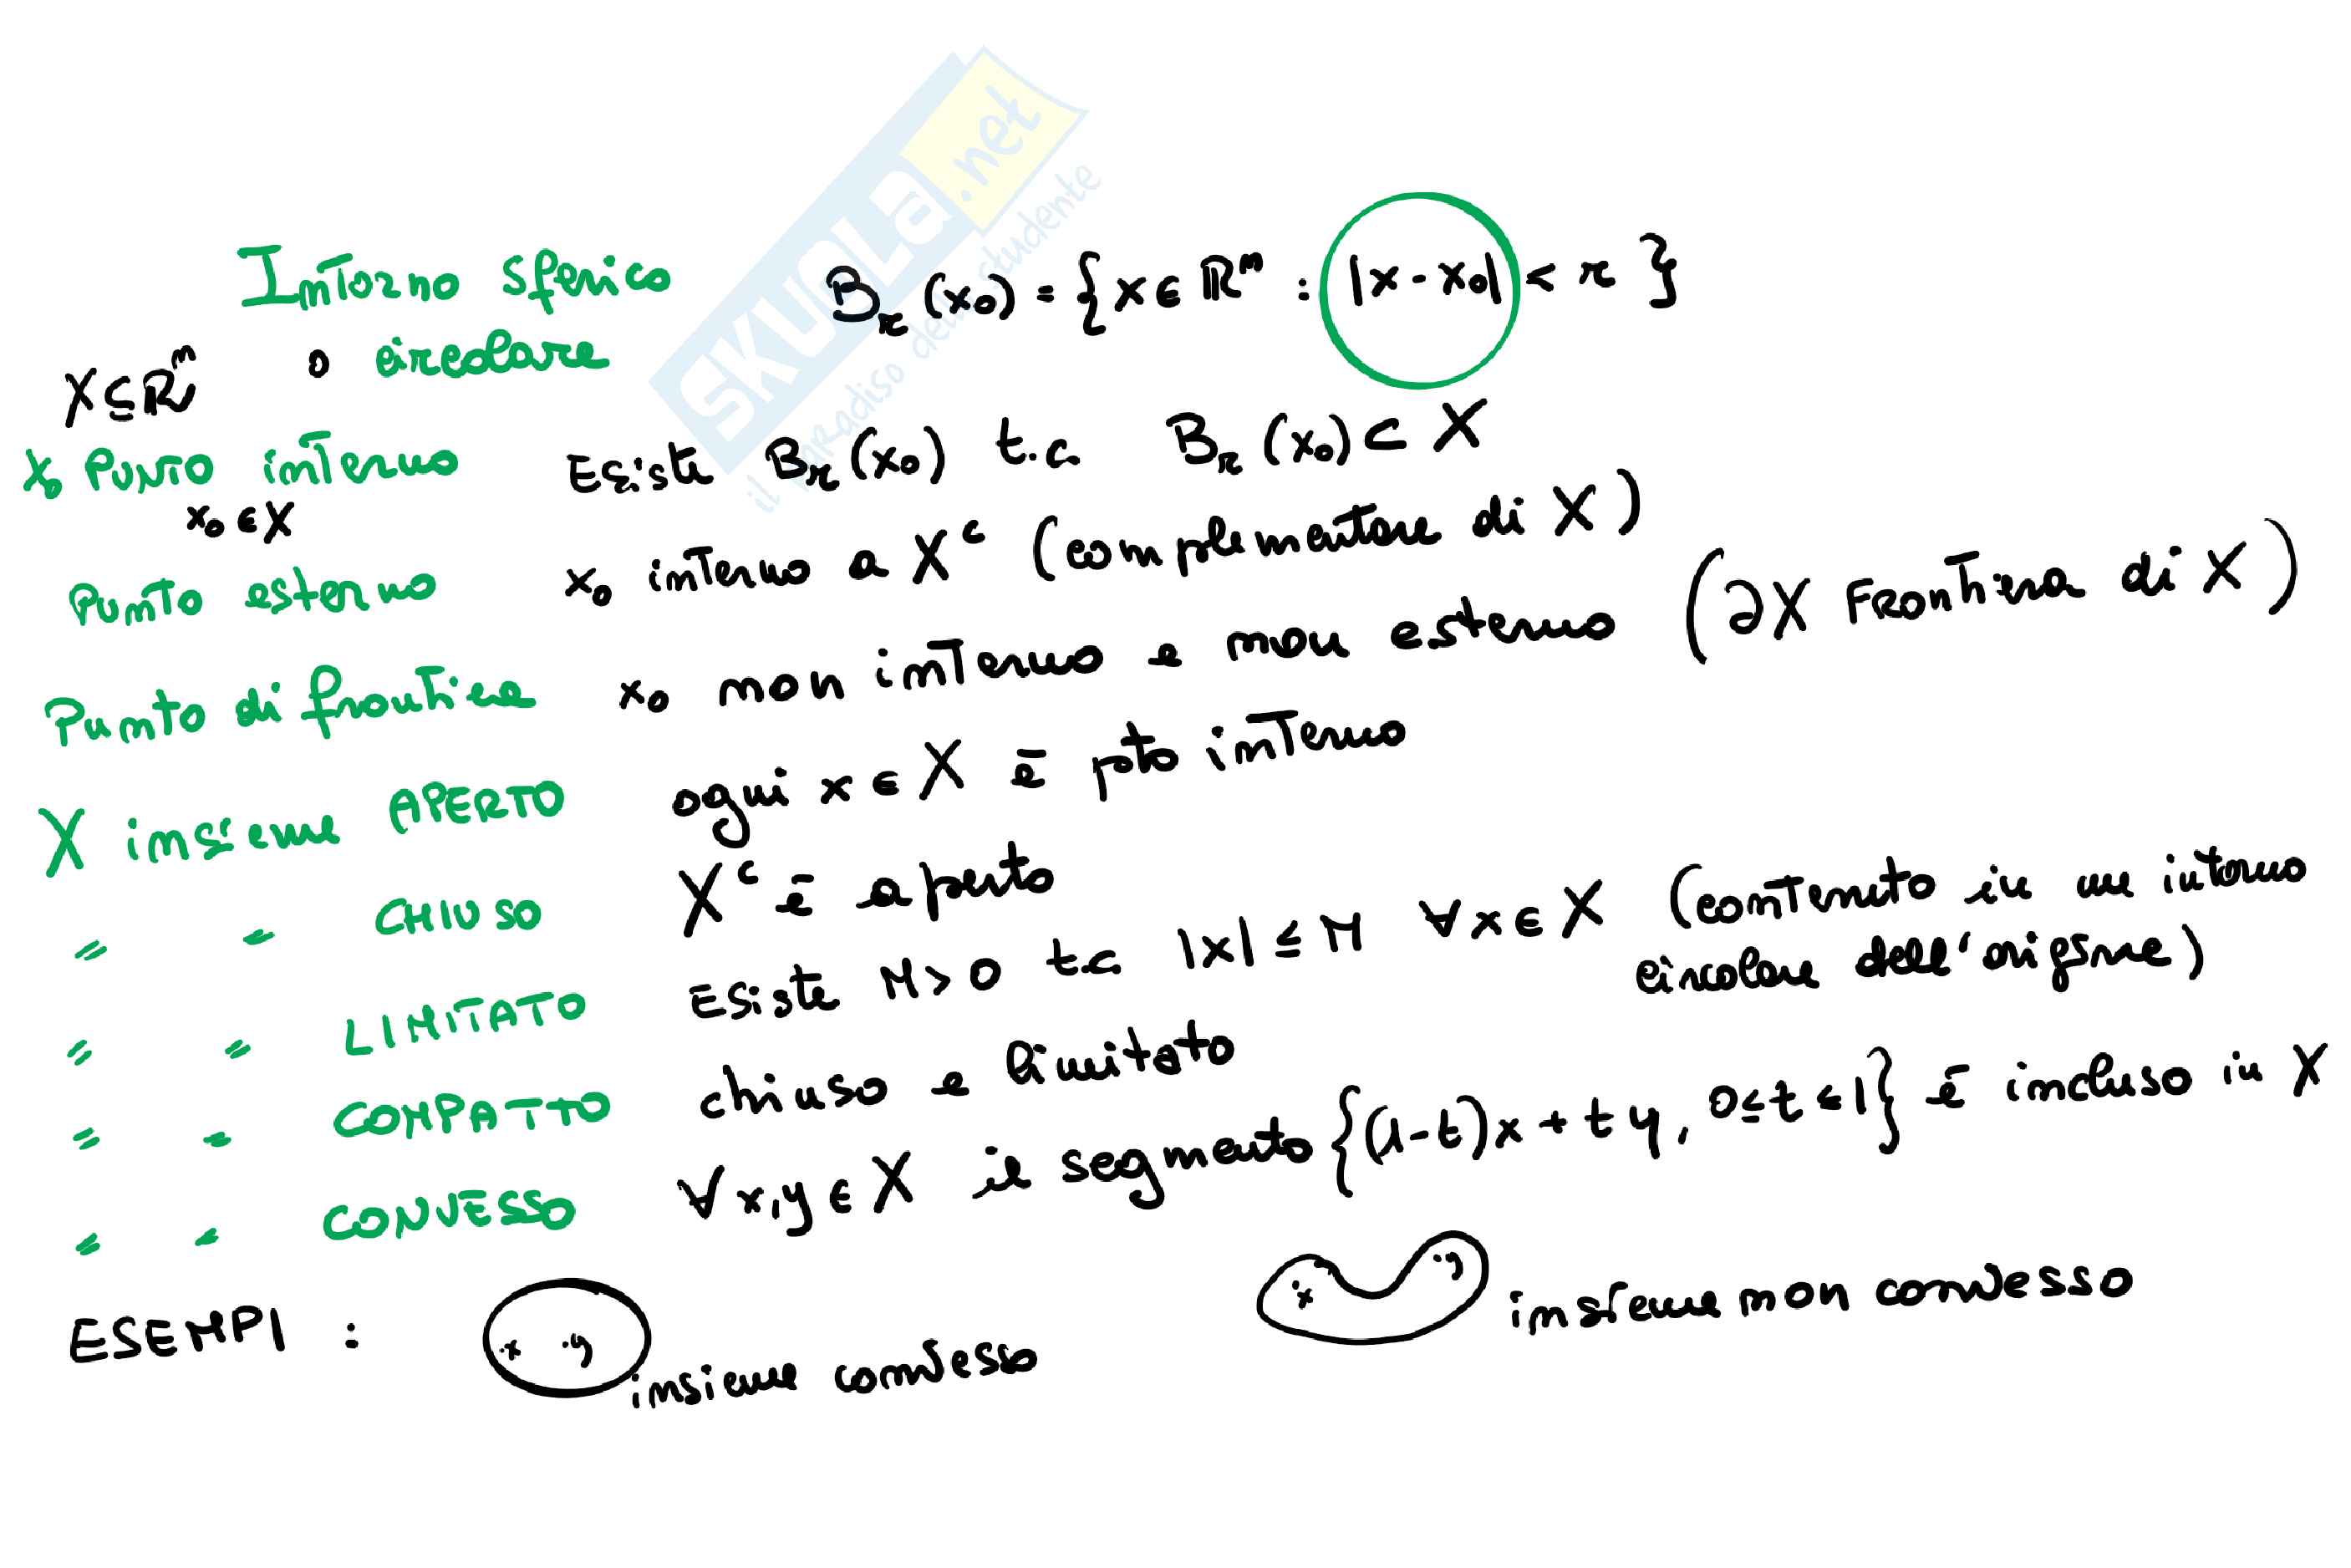 SKUOLA.net
il paradiso dello studente
Intorno sferico B_r (x₀) = { x ∈ ℝⁿ : |x - x₀| < r }
o circolare
X ⊆ ℝⁿ
x₀ Punto interno Esiste B_r (x₀) t.c. B_r (x₀) ⊂ X
x₀ ∈ X
Punto esterno x₀ interno a Xᶜ (complementare di X)
Punto di frontiera x₀ non interno e non esterno (∂X Frontiera di X)
X insieme APERTO ogni x ∈ X è pto interno
" " CHIUSO Xᶜ è aperto
" " LIMITATO Esiste M > 0 t.c. |x| ≤ M ∀x ∈ X (contenuto in un intorno
circolare dell'origine)
" " COMPATTO chiuso e limitato
" " CONVESSO ∀ x,y ∈ X il segmento {(1-t)x + ty, 0≤t≤1} è incluso in X
ESEMPI : x y insieme convesso x y insieme non convesso